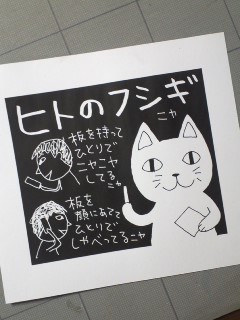 ヒトのフシギ
ニャ
板を持って
ひとりで
ニヤニヤ
してる
ニャ
板を
顔にあてて
ひとりで
しゃべってるニャ